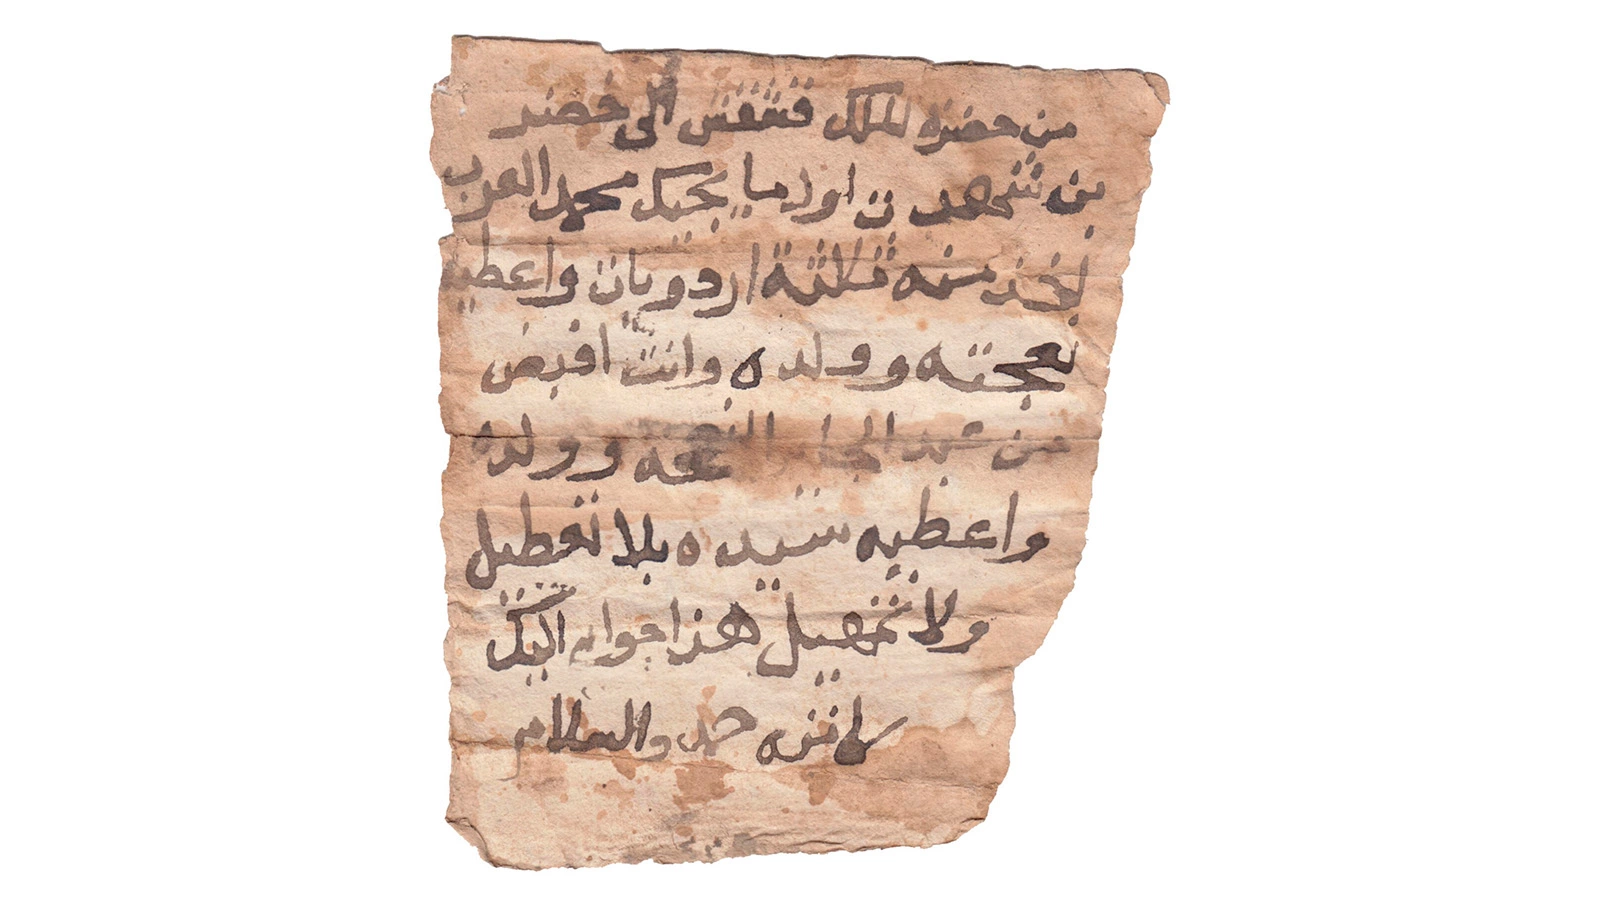 من حضرة الملك قشقش الى خضر
بن شجهدت اول ما يجيك محمد العرب
ياخذ منه ثلاثة اردويات واعطيه
نعجته وولده وانت اقبض
من عبد النعجه وولده
واعطيه سيده بلا تعطيل
ولا تمهيل هذا جوابي اليك
كاتبه حمد والسلام